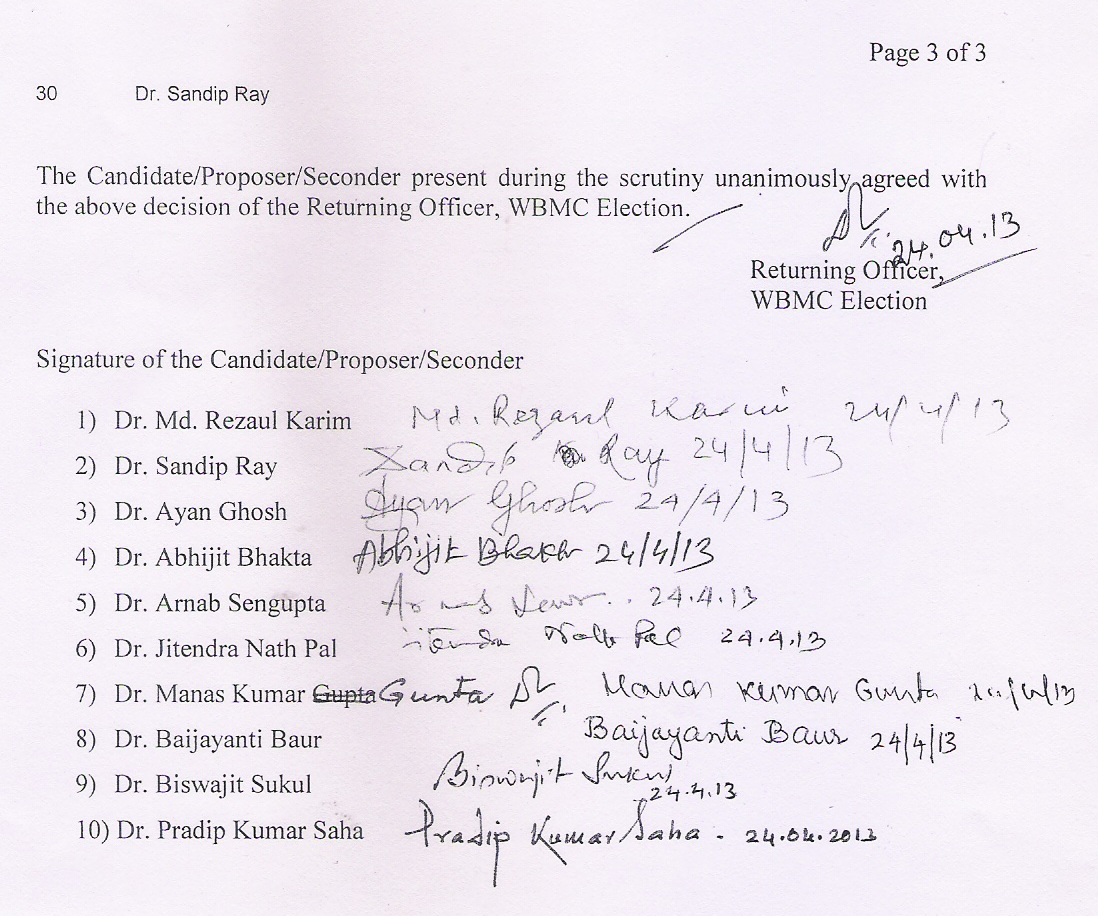 Page 3 of 3
30 Dr. Sandip Ray
The Candidate/Proposer/Seconder present during the scrutiny unanimously agreed with
the above decision of the Returning Officer, WBMC Election.
24.04.13
Returning Officer,
WBMC Election
Signature of the Candidate/Proposer/Seconder
1) Dr. Md. Rezaul Karim Md. Rezaul Karim 24/4/13
2) Dr. Sandip Ray Sandip Ray 24/4/13
3) Dr. Ayan Ghosh Ayan Ghosh 24/4/13
4) Dr. Abhijit Bhakta Abhijit Bhakta 24/4/13
5) Dr. Arnab Sengupta Arnab 24.4.13
6) Dr. Jitendra Nath Pal Jitendra Nath Pal 24.4.13
7) Dr. Manas Kumar Gupta Gunta Manas Kumar Gunta
8) Dr. Baijayanti Baur Baijayanti Baur 24/4/13
9) Dr. Biswajit Sukul Biswajit Sukul
24.4.13
10) Dr. Pradip Kumar Saha Pradip Kumar Saha. 24.04.2013